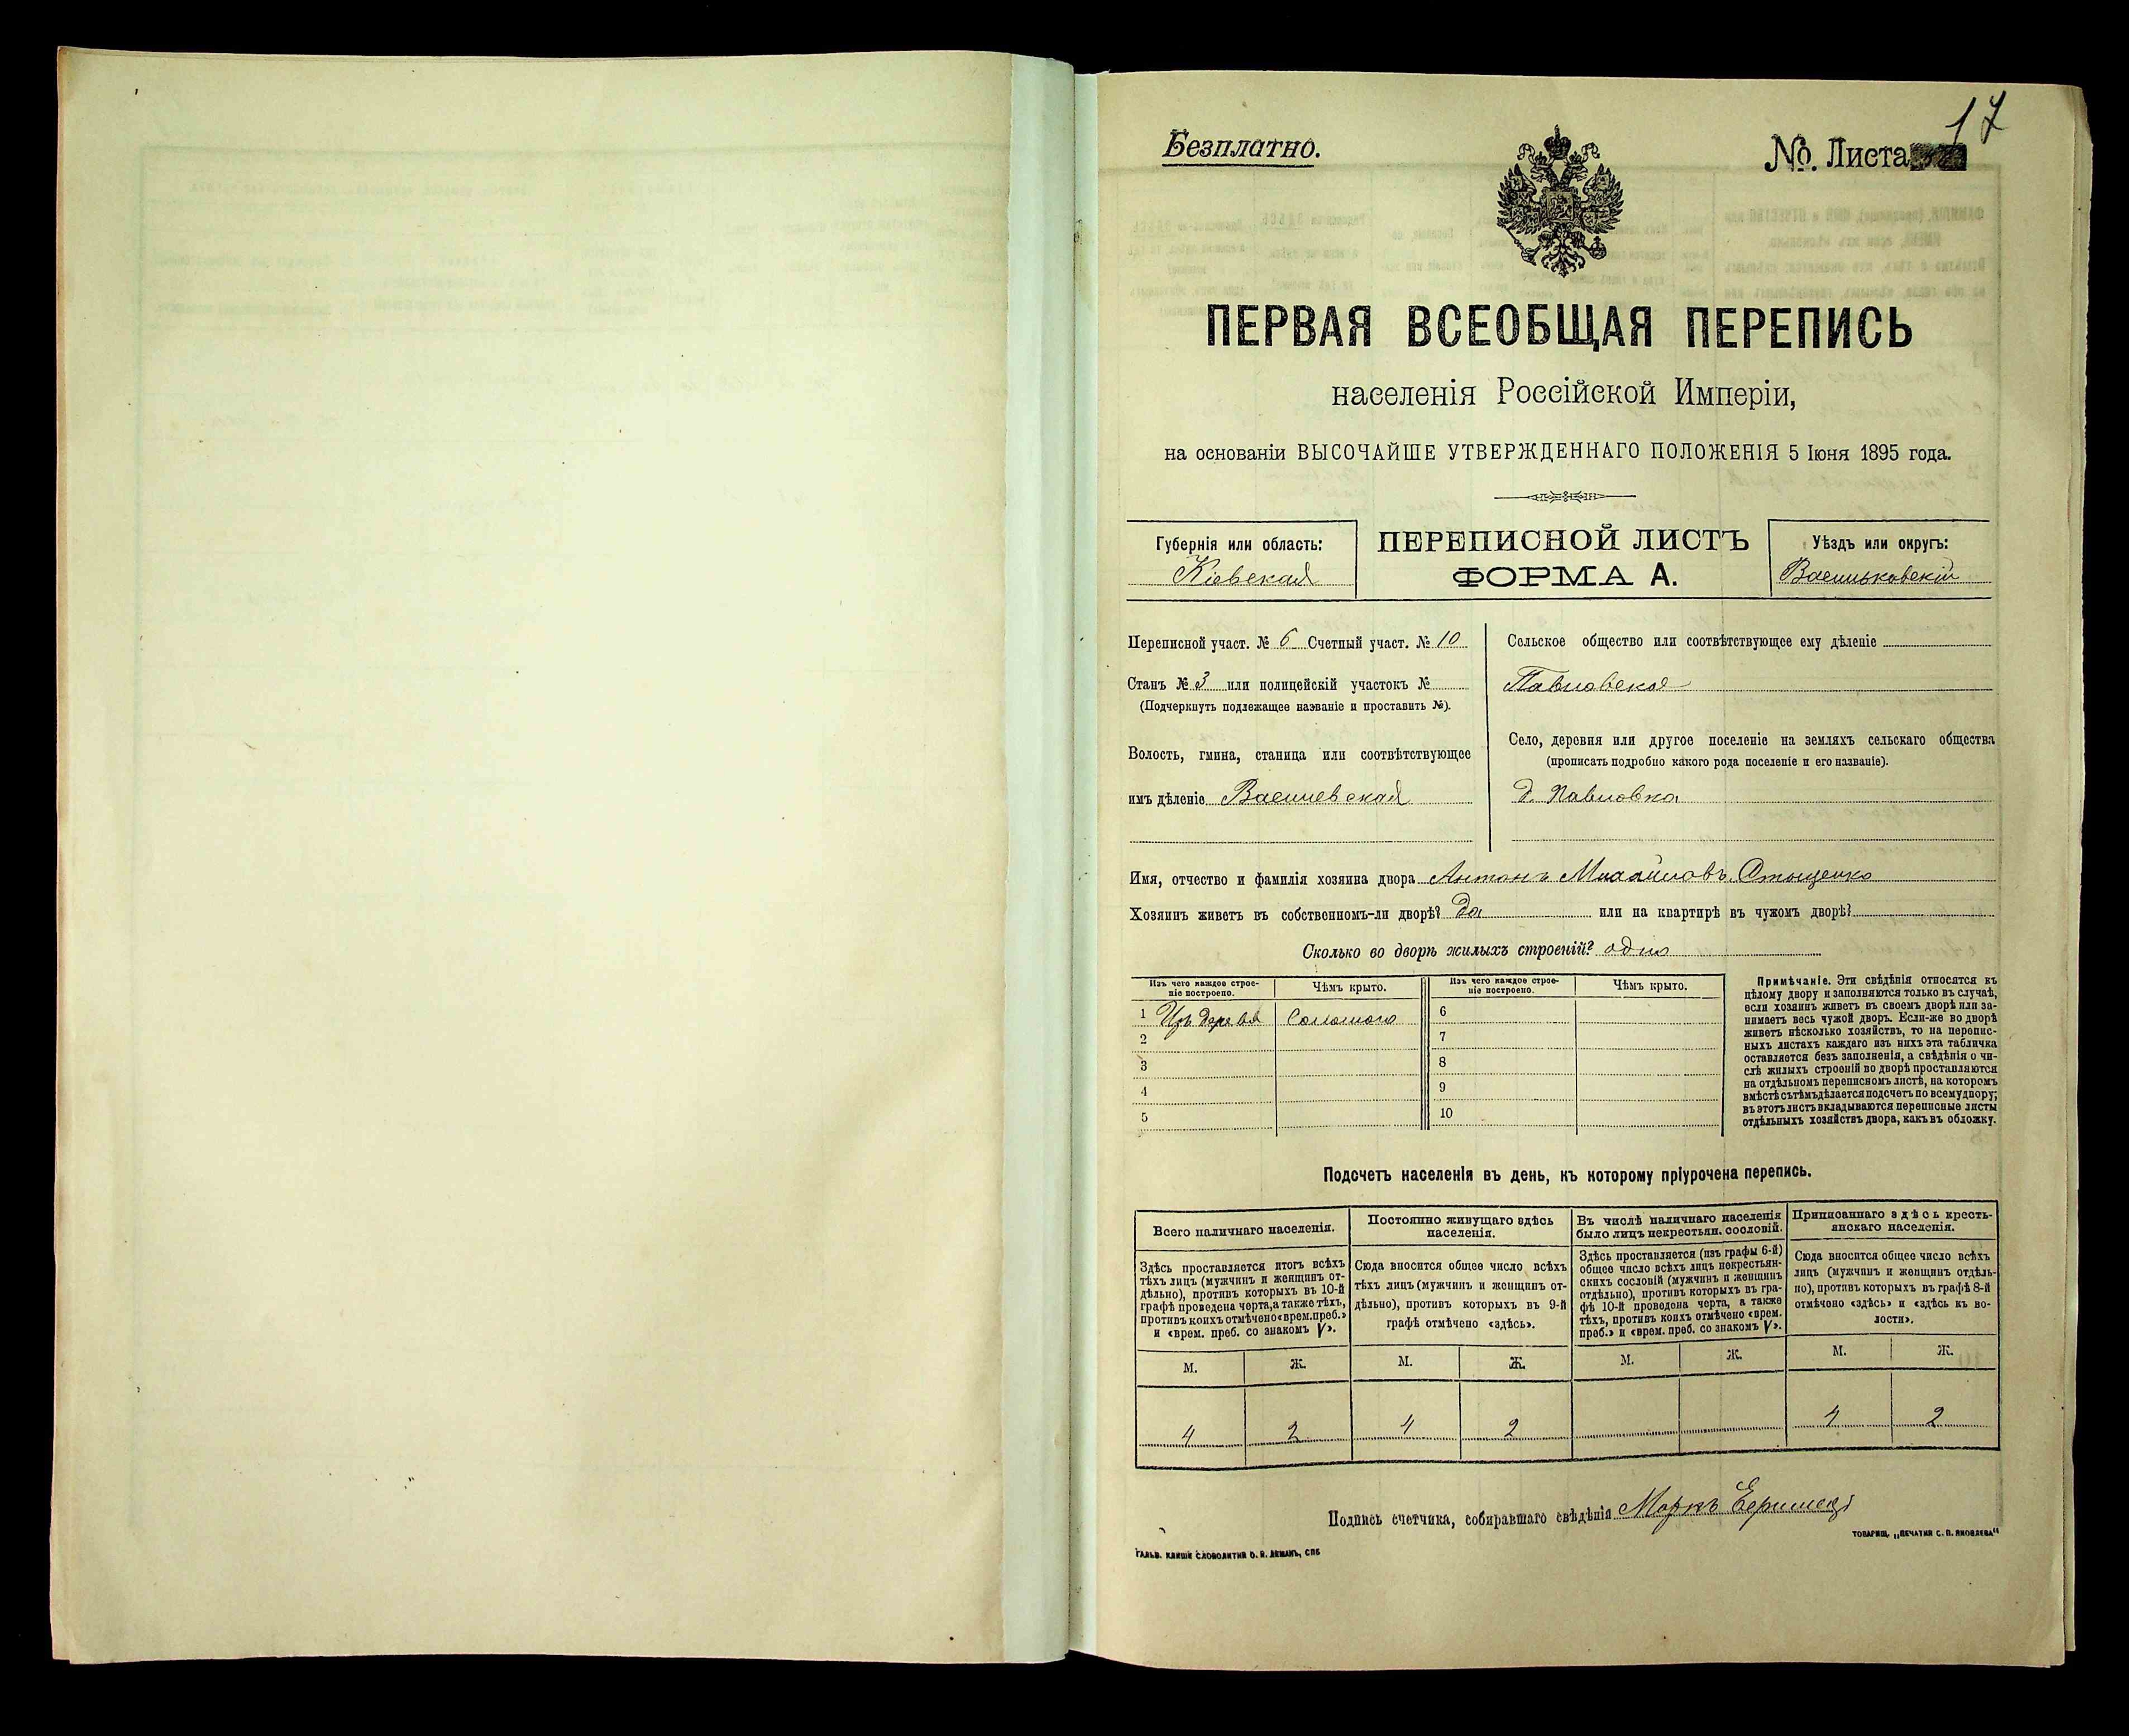 17
Безплатно.
№. Листа
ПЕРВАЯ ВСЕОБЩАЯ ПЕРЕПИСЬ
населенія Россійской Имперіи,
на основаніи ВЫСОЧАЙШЕ УТВЕРЖДЕННАГО ПОЛОЖЕНІЯ 5 Іюня 1895 года.
Губернія или область:
Кіевская
ПЕРЕПИСНОЙ ЛИСТЪ
ФОРМА А.
Уѣздъ или округъ:
Васильковскій
Переписной участ. № 6 Счетный участ. № 10
Станъ № 3 или полицейскій участокъ №
(Подчеркнуть подлежащее названіе и проставить №).
Волость, гмина, станица или соотвѣтствующее
имъ дѣленіе
Сельское общество или соотвѣтствующее ему дѣленіе
Павловское
Село, деревня или другое поселеніе на земляхъ сельскаго общества
(прописать подробно какого рода поселеніе и его названіе).
д. Павловка
Имя, отчество и фамилія хозяина двора Антонъ Михайловъ
Хозяинъ живетъ въ собственномъ-ли дворѣ? Да или на квартирѣ въ чужомъ дворѣ?
Сколько во дворѣ жилыхъ строеній? одно
Изъ чего каждое строе-
ніе построено.
Чѣмъ крыто.
Изъ чего каждое строе-
ніе построено.
Чѣмъ крыто.
1 Изъ дерева Соломою
2
3
4
5
6
7
8
9
10
Примѣчаніе. Эти свѣдѣнія относятся къ
цѣлому двору и заполняются только въ случаѣ,
если хозяинъ живетъ въ своемъ дворѣ или за-
нимаетъ весь чужой дворъ. Если-же во дворѣ
живетъ нѣсколько хозяйствъ, то на перепис-
ныхъ листахъ каждаго изъ нихъ эта табличка
оставляется безъ заполненія, а свѣдѣнія о чи-
слѣ жилыхъ строеній во дворѣ проставляются
на отдѣльномъ переписномъ листѣ, на которомъ
вмѣстѣ съ тѣмъ дѣлается подсчетъ по всему двору;
въ этотъ листъ вкладываются переписные листы
отдѣльныхъ хозяйствъ двора, какъ въ обложку.
Подсчетъ населенія въ день, къ которому пріурочена перепись.
Всего наличнаго населенія.
Здѣсь проставляется итогъ всѣхъ
тѣхъ лицъ (мужчинъ и женщинъ от-
дѣльно), противъ которыхъ въ 10-й
графѣ проведена черта, а также тѣхъ,
противъ коихъ отмѣчено «врем. преб.»
и «врем. преб. со знакомъ V».
Постоянно живущаго здѣсь
населенія.
Сюда вносится общее число всѣхъ
тѣхъ лицъ (мужчинъ и женщинъ от-
дѣльно), противъ которыхъ въ 9-й
графѣ отмѣчено «здѣсь».
Въ числѣ наличнаго населенія
было лицъ некрестьян. сословій.
Здѣсь проставляется (изъ графы 6-й)
общее число всѣхъ лицъ некрестьян-
скихъ сословій (мужчинъ и женщинъ
отдѣльно), противъ которыхъ въ гра-
фѣ 10-й проведена черта, а также
тѣхъ, противъ коихъ отмѣчено «врем.
преб.» и «врем. преб. со знакомъ V».
Приписаннаго здѣсь кресть-
янскаго населенія.
Сюда вносится общее число всѣхъ
лицъ (мужчинъ и женщинъ отдѣль-
но), противъ которыхъ въ графѣ 8-й
отмѣчено «здѣсь» и «здѣсь къ во-
лости».
М. Ж. М. Ж. М. Ж. М. Ж.
4 2 4 2 4 2
Подпись счетчика, собиравшаго свѣдѣнія Маркъ
ТОВАРИЩ. „ПЕЧАТНЯ С. П. ЯКОВЛЕВА“
ГАЛЬВ. КЛИШЕ СЛОВОЛИТНИ О. И. ЛЕМАНЪ, СПБ